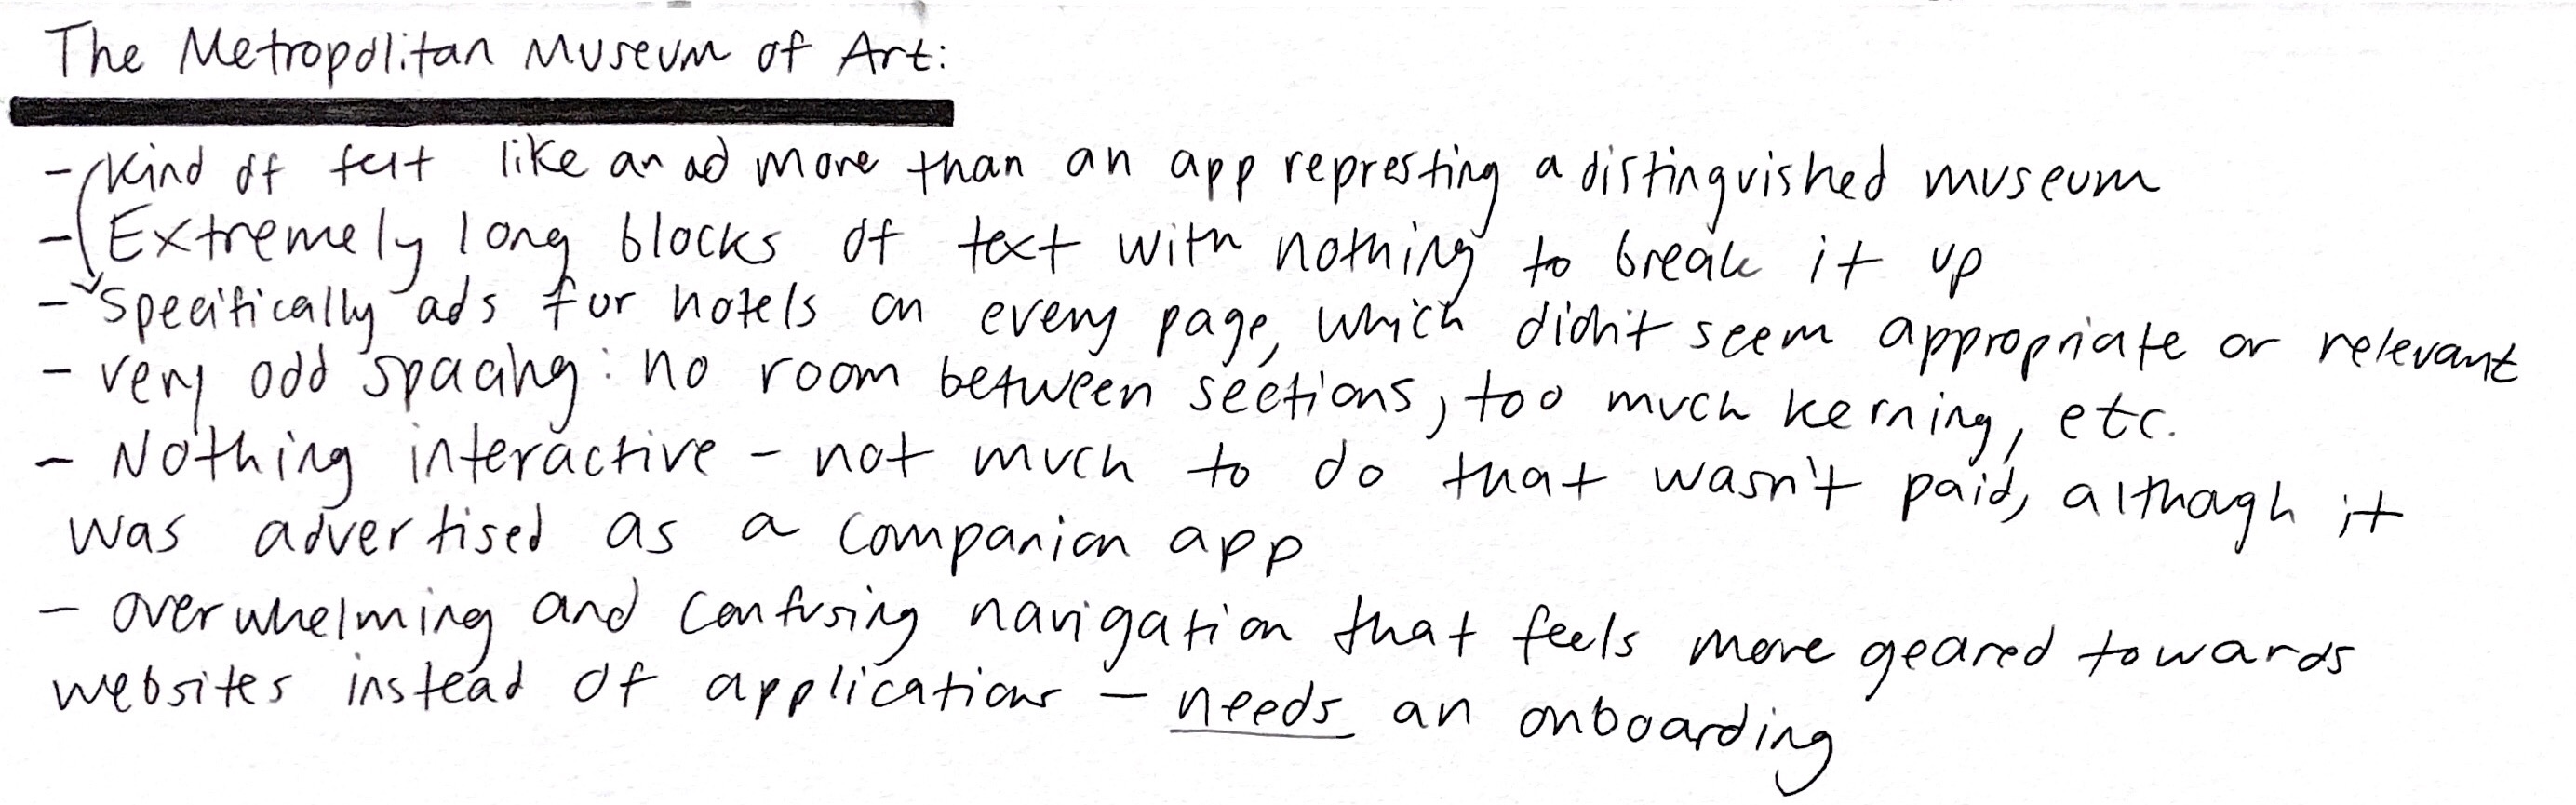 The Metropolitan Museum of Art:
- Kind of felt like an ad more than an app represting a distinguished museum
- Extremely long blocks of text with nothing to break it up
- Specifically ads for hotels on every page, which didn't seem appropriate or relevant
- very odd spacing: no room between sections, too much kerning, etc.
- Nothing interactive - not much to do that wasn't paid, although it
was advertised as a companion app
- overwhelming and confusing navigation that feels more geared towards
websites instead of applications - needs an onboarding